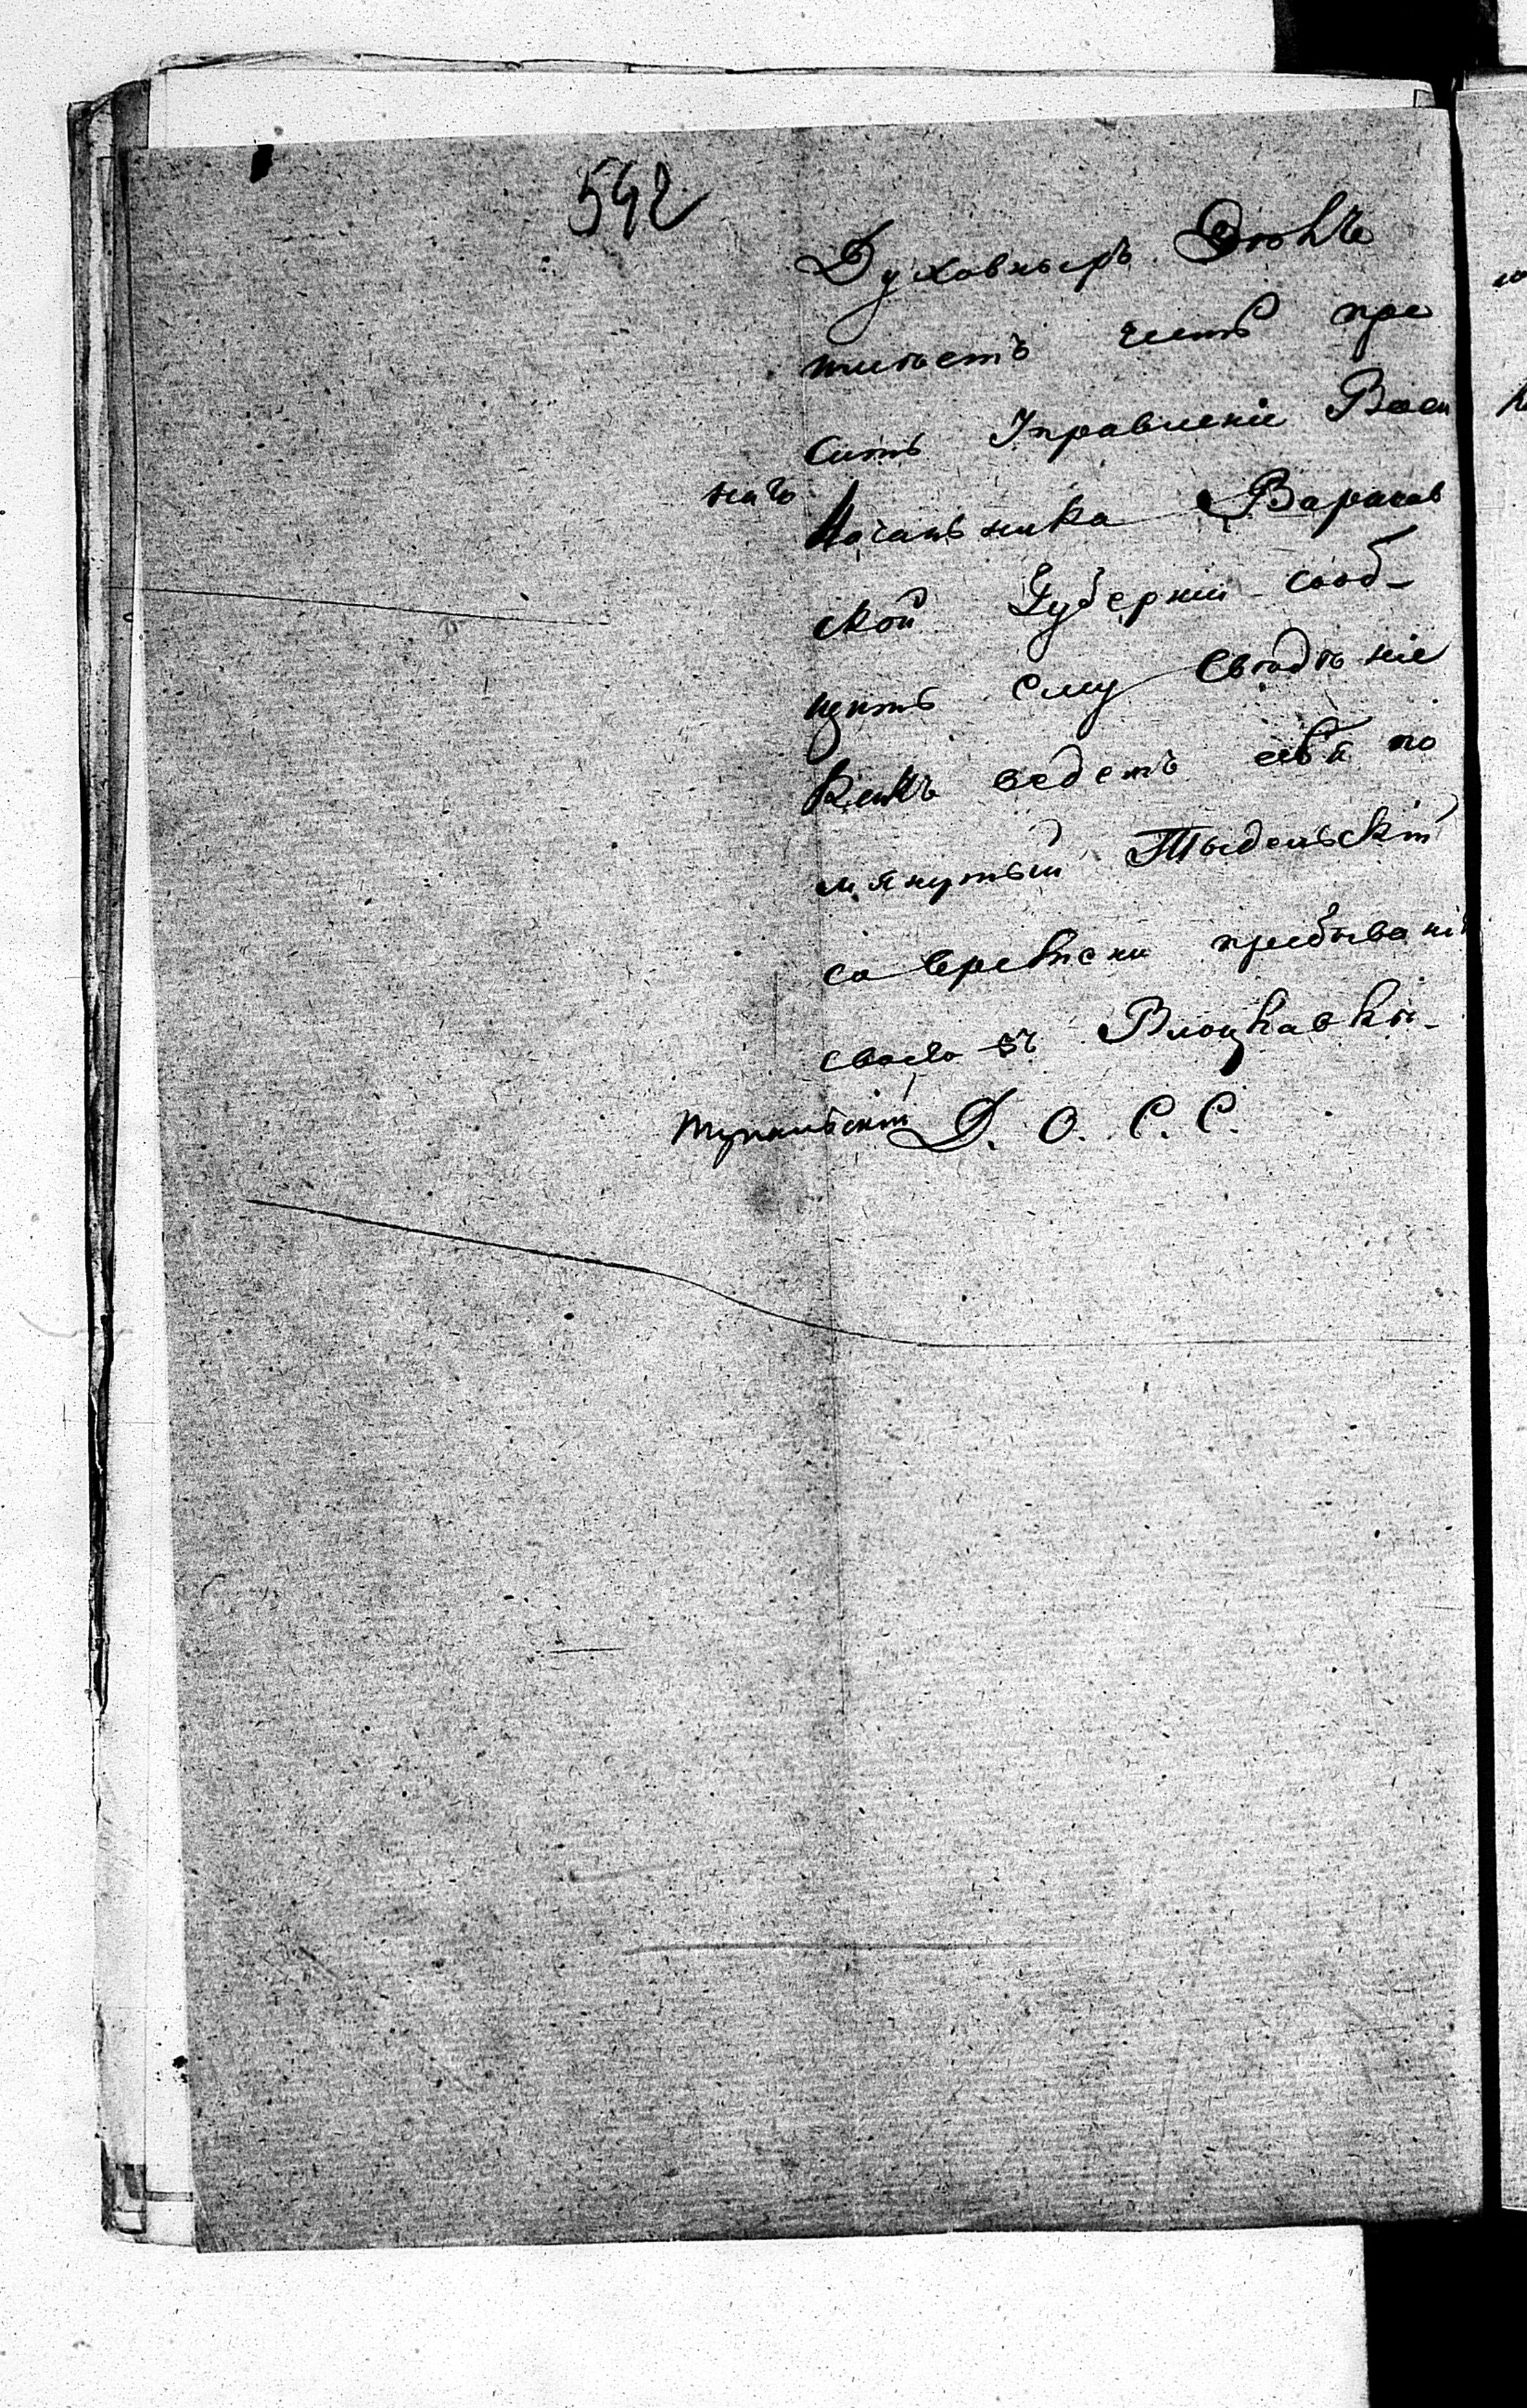 542
Духовныхъ Дѣлъ
имѣетъ честь про
сить Управленіе Воен
наго
Начальника Варшав
ской Губерніи сооб-
щить ему свѣдѣніе
какъ ведетъ себя по
мянутый
со времени пребыванія
своего въ Влоцлавкѣ.
Д. О. С. С.